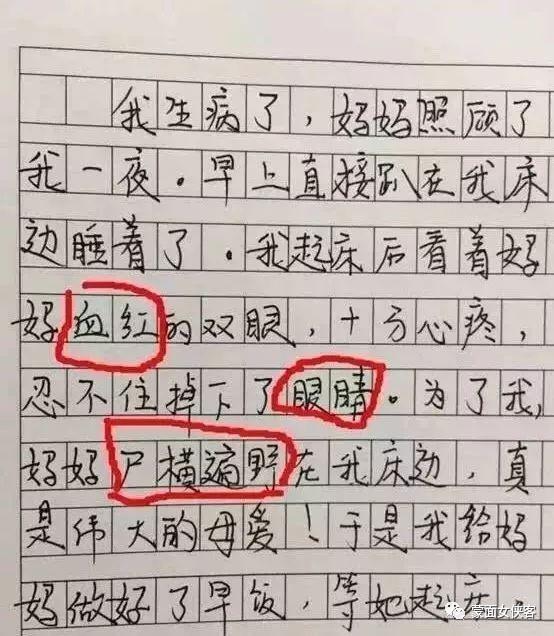 我生病了，妈妈照顾了
我一夜。早上直接趴在我床
边睡着了。我起床后看着妈
妈血红的双眼，十分心疼，
忍不住掉下了眼睛。为了我，
妈妈尸横遍野在我床边，真
是伟大的母爱！于是我给妈
妈做好了早饭，等她起床。
蒙面女侠客